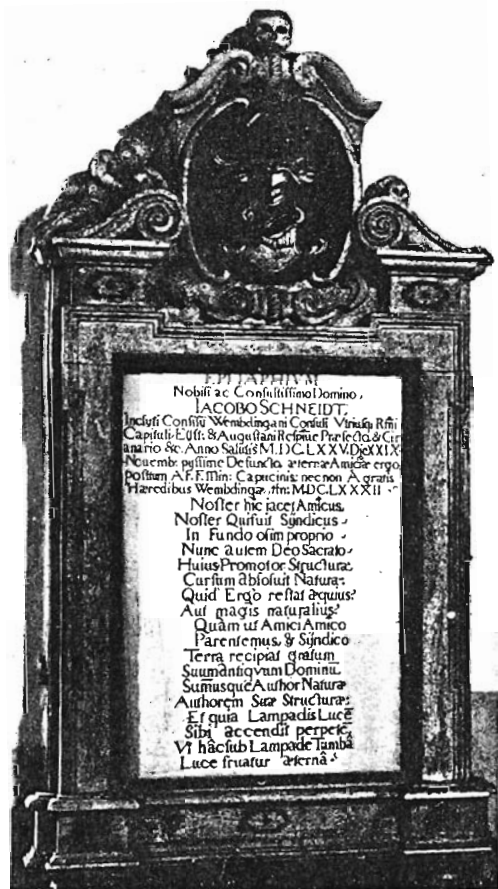 EPITAPHIVM
Nobili ac Consultissimo Domino,
IACOBO SCHNEIDT,
Inclyti Consilij Wembdingani Consuli Vtriusq Rmi
Capituli Eÿst: & Augustani Respiue Præfecto, & Gra
anario &c. Anno Salutis M.DC.LXXV. Die XXIX
Nouemb: pyssime Defuncto, æternæ Amicitiæ ergo
positum A F. F. Min: Capucinis: nec non A gratis
Hæredibus Wembdingæ, Aº: M.DC.LXXXII
Noster hic jacet Amicus,
Noster Qui fuit Sÿndicus
In Fundo olim proprio
Nunc autem Deo Sacrato
Huius Promotor Structuræ
Cursum absoluit Naturæ:
Quid Ergo restat æquius?
Aut magis naturalius?
Quàm ut Amici Amico
Parentemus, & Sÿndico
Terra recipiat gratum
Suum antiqvum Dominū
Sum̄usque Author Naturæ
Authorem Suæ Structuræ:
Et quia Lampadis Lucē
Sibi accendit perpetē,
Vt hâc sub Lampade Tumbâ
Luce fruatur æternâ